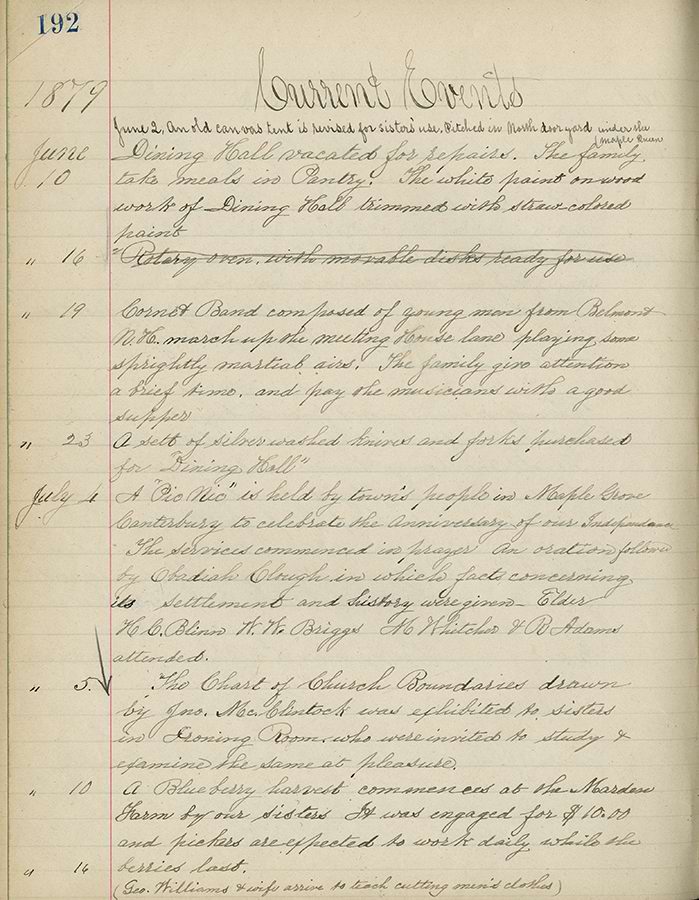 192
1879 Current Events
June 2, An old canvas tent is revised for sisters' use. Pitched in North door yard under the
(Maple
June Dining Hall vacated for repairs. The family
10 take meals in Pantry. The white paint on wood
work of Dining Hall trimmed with straw-colored
paint
" 16 " Rotary oven, with movable disks ready for use
" 19 Cornet Band composed of young men from Belmont
N.H. march up the meeting House lane playing some
sprightly martial airs. The family give attention
a brief time, and pay the musicians with a good
supper
" 23 A sett of silver washed knives and forks purchased
for "Dining Hall"
July 4 A "Pic Nic" is held by town's people in Maple Grove
Canterbury to celebrate the Anniversary of our Independence
The services commenced in prayer an oration followed
by Obadiah Clough in which facts concerning
its settlement and history were given - Elder
H. C. Blinn W. W. Briggs N Whitcher & R Adams
attended.
" 5. The Chart of Church Boundaries drawn
by Jno. McClintock was exhibited to sisters
in Ironing Room, who were invited to study &
examine the same at pleasure.
" 10 A Blueberry harvest commences at the Marden
Farm by our sisters It was engaged for $10.00
and pickers are expected to work daily while the
" 16 berries last.
(Geo. Williams & wife arrive to teach cutting men's clothes)